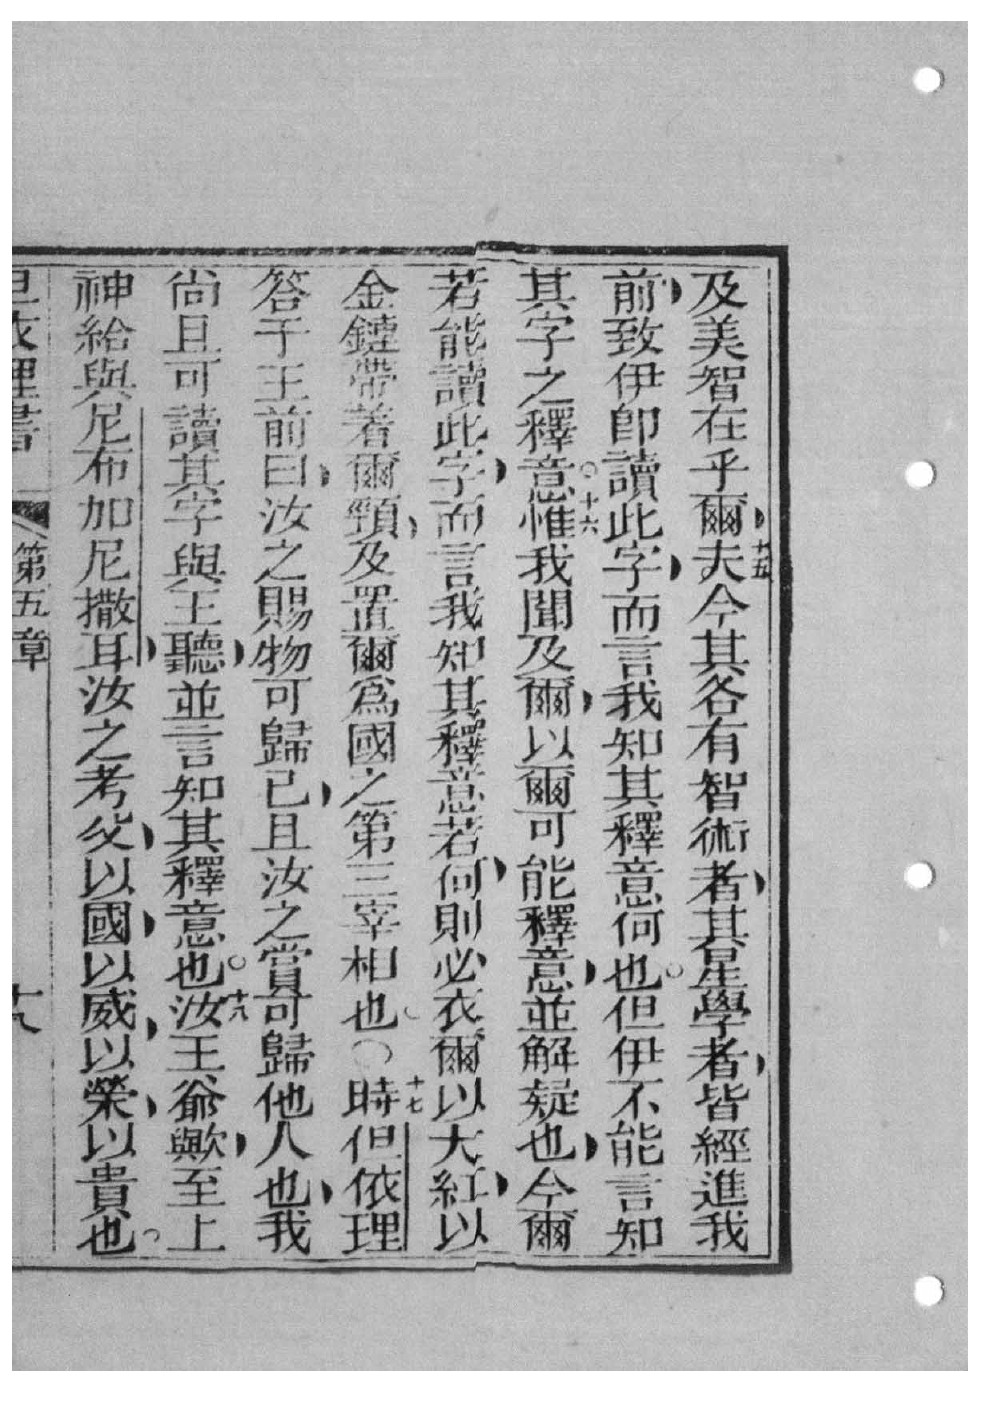 及美智在乎爾十五夫今其各有智術者其星學者皆經進我
前致伊即讀此字而言我知其釋意何也但伊不能言知
其字之釋意。十六惟我聞及爾以爾可能釋意並解疑也今爾
若能讀此字而言我知其釋意若何則必衣爾以大紅以
金鏈帶着爾頸及置爾為國之第三宰相也○十七時但依理
答于王前曰汝之賜物可歸已且汝之賞可歸他人也我
尚且可讀其字與王聽並言知其釋意也。十八汝王爺歟至上
神給與尼布加尼撒耳汝之考父以國以威以榮以貴也
但衣理書 第五章 十八